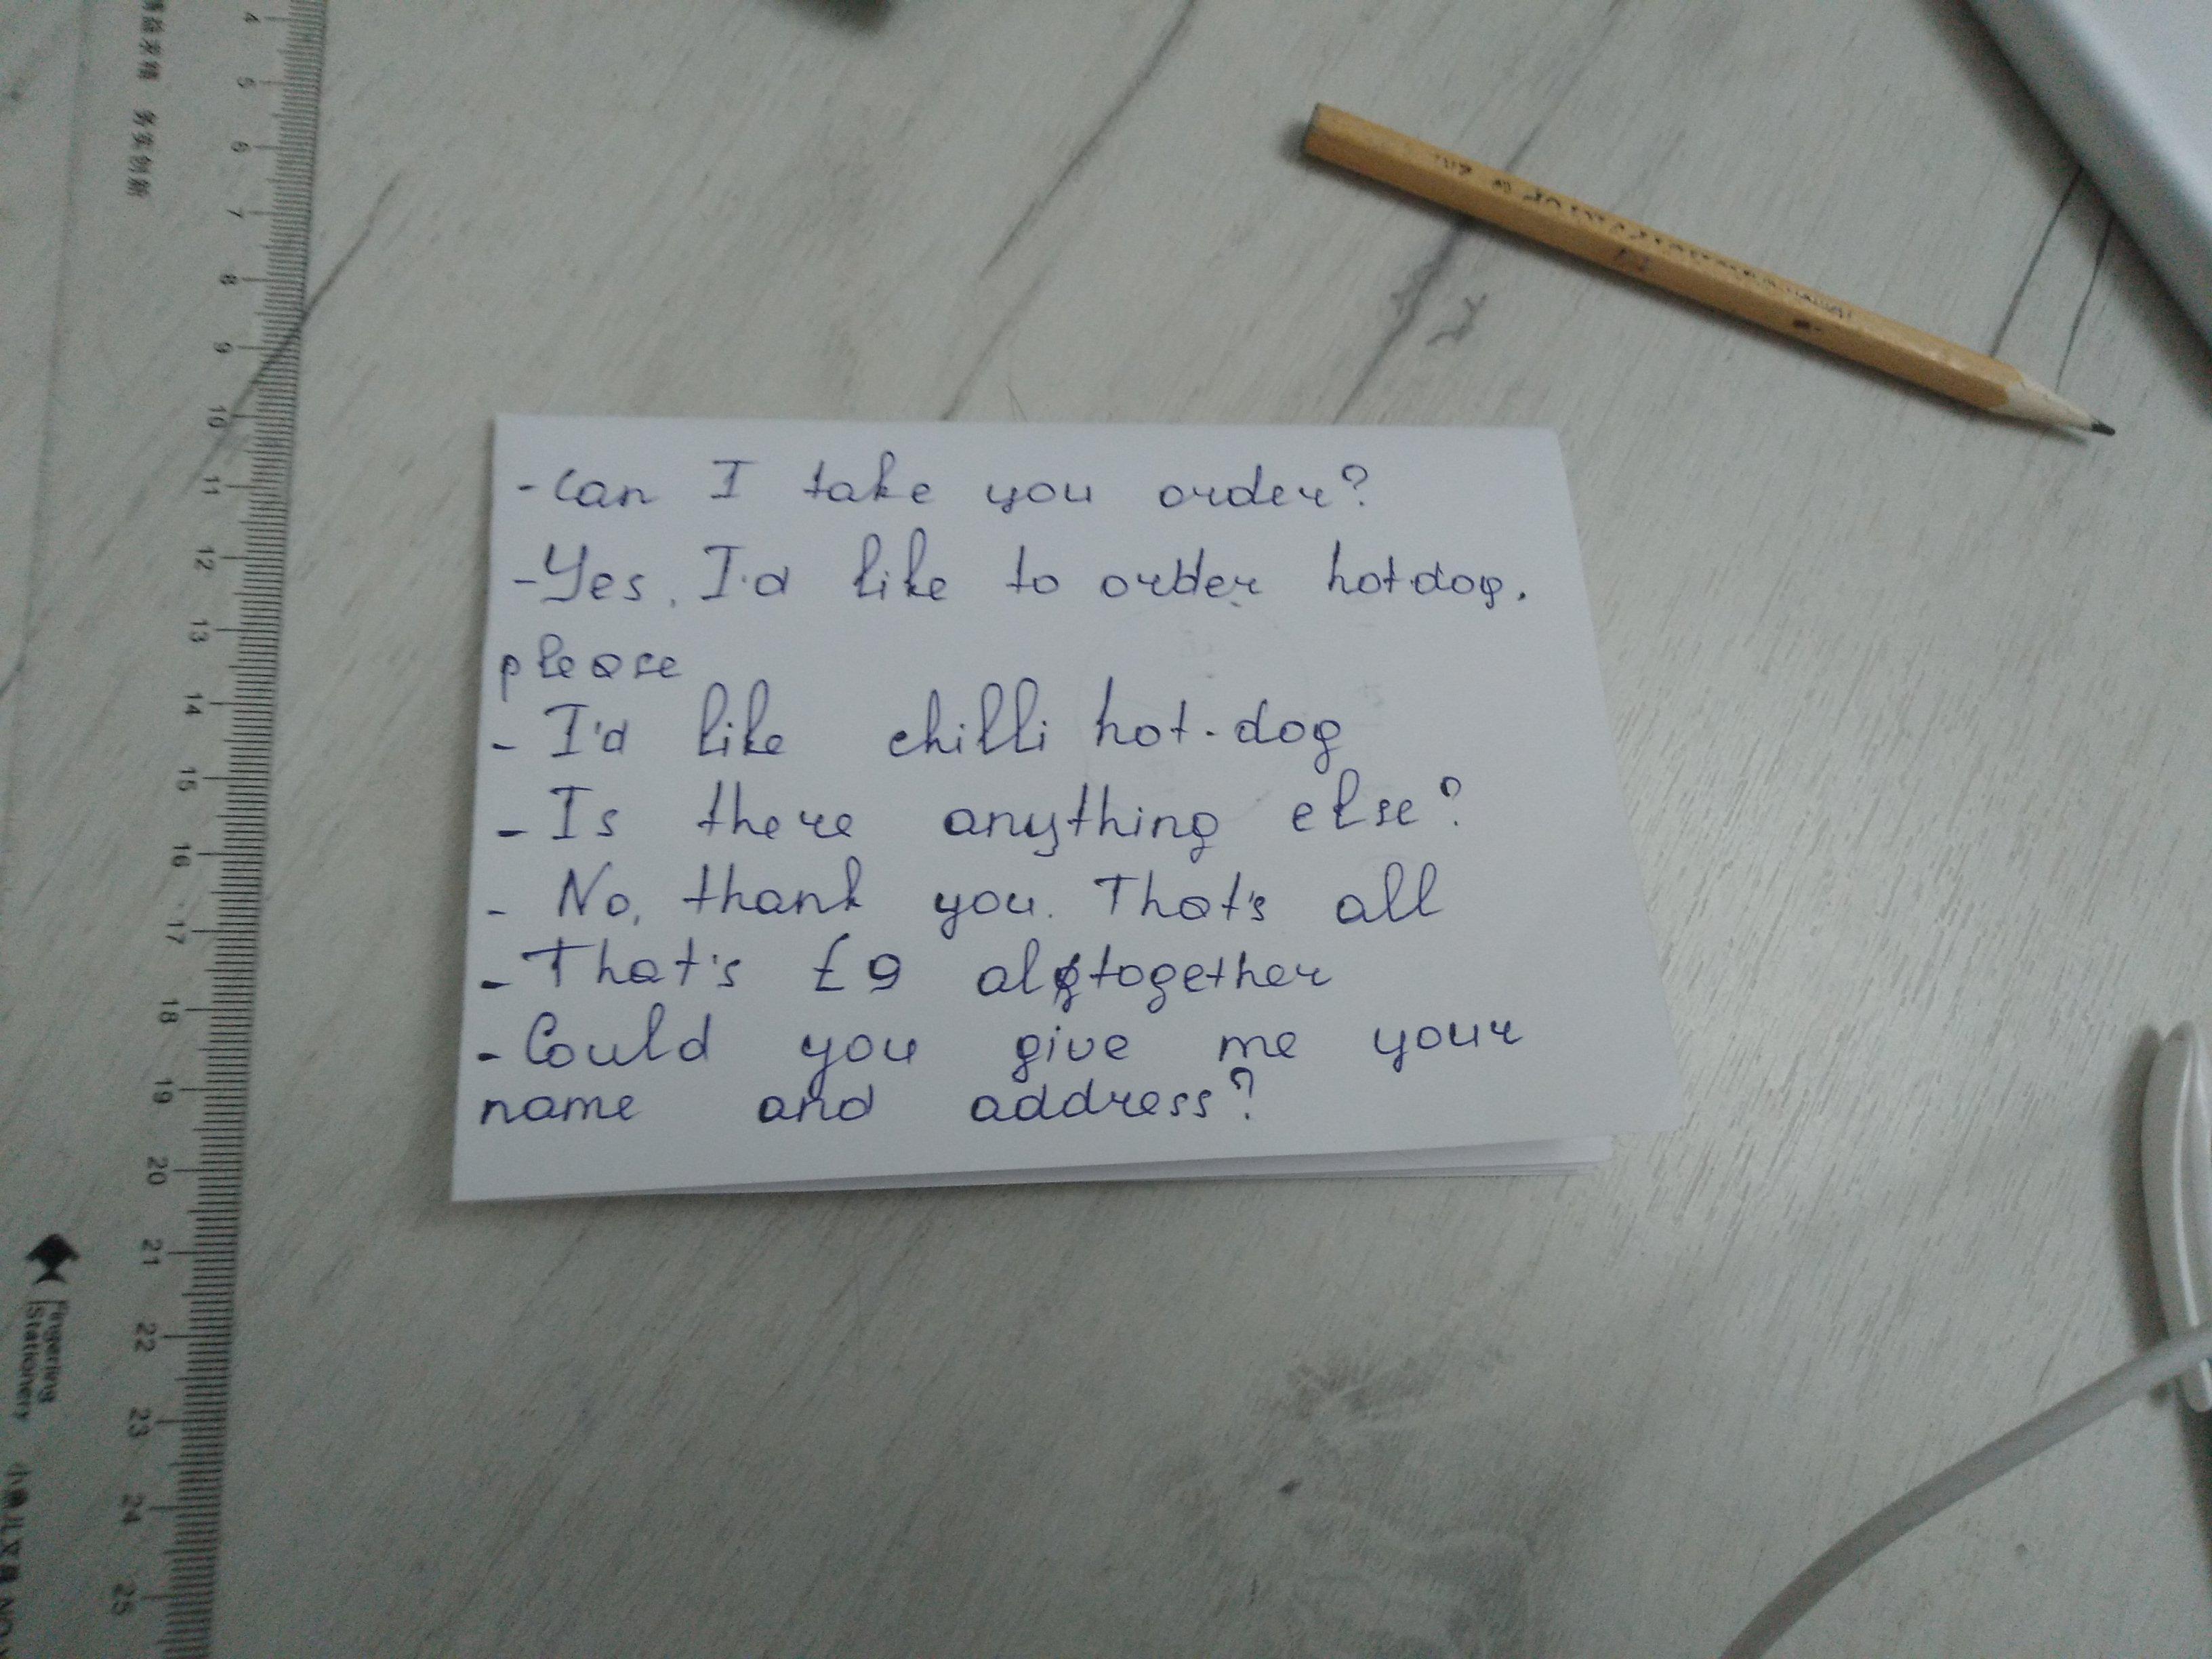 - Can I take you order?
- Yes, I'd like to order hot-dog,
please
- I'd like chilli hot-dog
- Is there anything else?
- No, thank you. That's all
- That's £9 altogether
- Could you give me your
name and address?
4
5
6
7
8
9
10
11
12
13
14
15
16
17
18
19
20
21
22
23
24
25
Fingering
Stationery